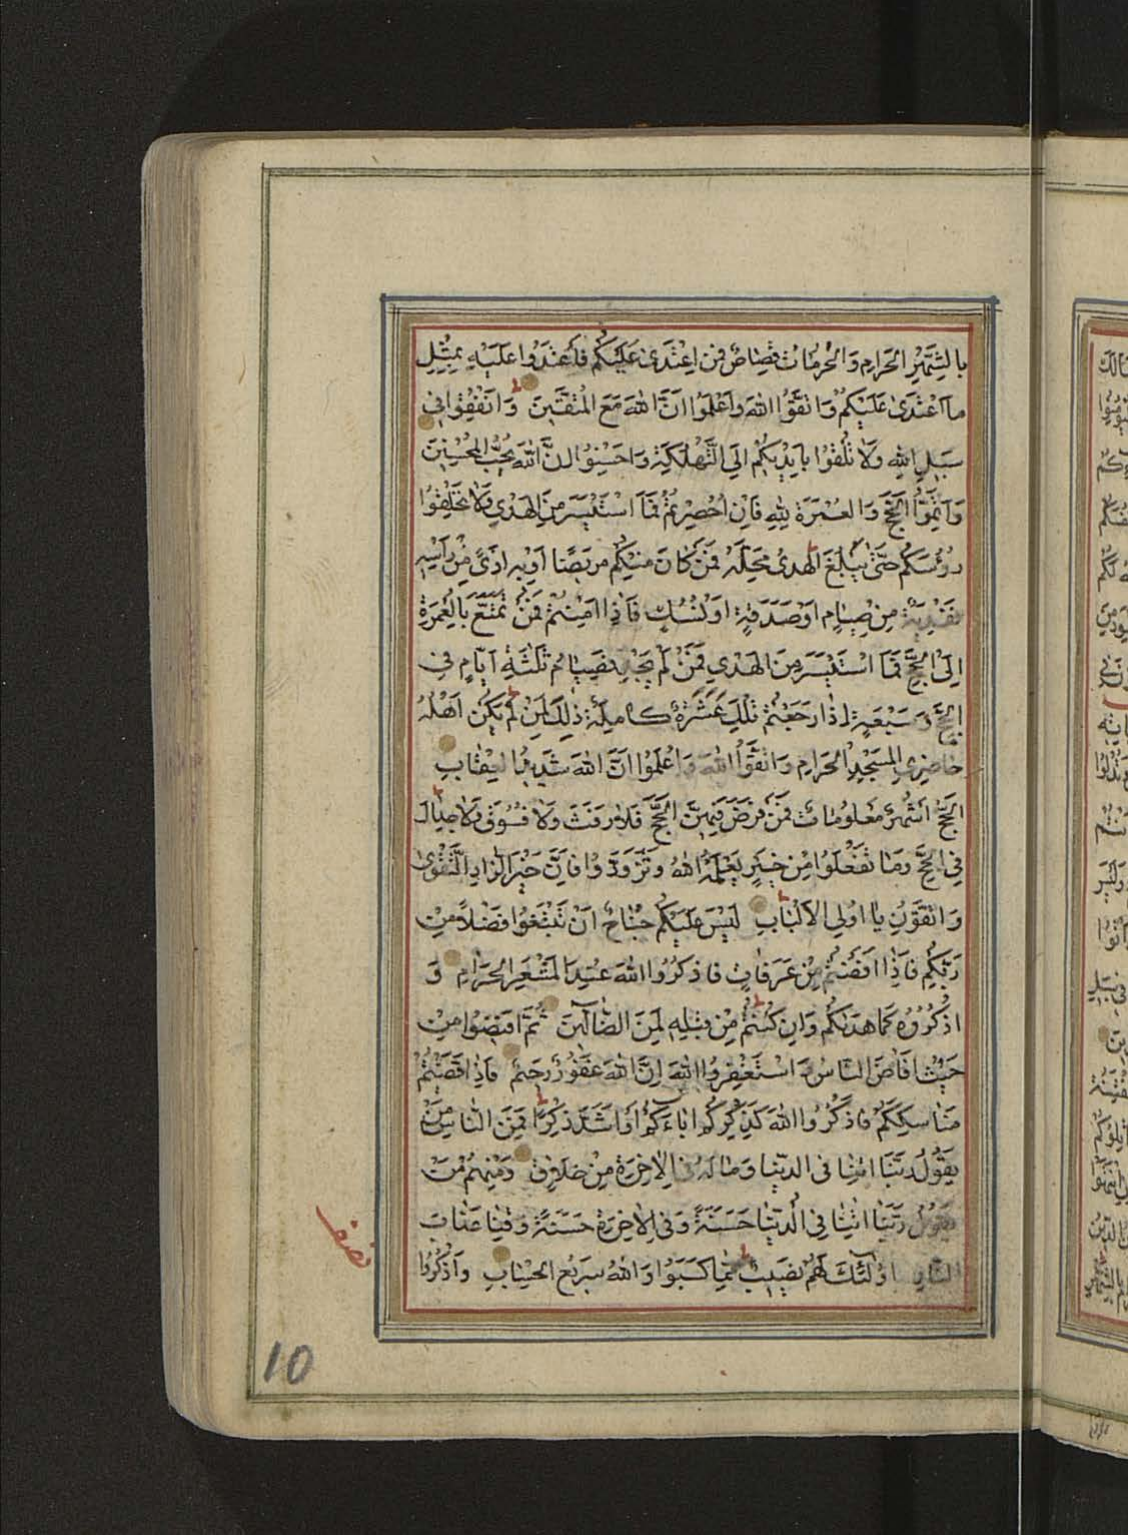 بِالشَّهْرِ الْحَرَامِ وَالْحُرُمَاتُ قِصَاصٌ فَمَنِ اعْتَدَىٰ عَلَيْكُمْ فَاعْتَدُوا عَلَيْهِ بِمِثْلِ
مَا اعْتَدَىٰ عَلَيْكُمْ وَاتَّقُوا اللّٰهَ وَاعْلَمُوا اَنَّ اللّٰهَ مَعَ الْمُتَّقِينَ وَاَنْفِقُوا فِي
سَبِيلِ اللّٰهِ وَلَا تُلْقُوا بِاَيْدِيكُمْ اِلَى التَّهْلُكَةِ وَاَحْسِنُوا اِنَّ اللّٰهَ يُحِبُّ الْمُحْسِنِينَ
وَاَتِمُّوا الْحَجَّ وَالْعُمْرَةَ لِلّٰهِ فَاِنْ اُحْصِرْتُمْ فَمَا اسْتَيْسَرَ مِنَ الْهَدْيِ وَلَا تَحْلِقُوا
رُؤُسَكُمْ حَتَّىٰ يَبْلُغَ الْهَدْيُ مَحِلَّهُ فَمَنْ كَانَ مِنْكُمْ مَرِيضًا اَوْ بِهِ اَذًى مِنْ رَاْسِهِ
فَفِدْيَةٌ مِنْ صِيَامٍ اَوْ صَدَقَةٍ اَوْ نُسُكٍ فَاِذَا اَمِنْتُمْ فَمَنْ تَمَتَّعَ بِالْعُمْرَةِ
اِلَى الْحَجِّ فَمَا اسْتَيْسَرَ مِنَ الْهَدْيِ فَمَنْ لَمْ يَجِدْ فَصِيَامُ ثَلٰثَةِ اَيَّامٍ فِي
الْحَجِّ وَسَبْعَةٍ اِذَا رَجَعْتُمْ تِلْكَ عَشَرَةٌ كَامِلَةٌ ذٰلِكَ لِمَنْ لَمْ يَكُنْ اَهْلُهُ
حَاضِرِي الْمَسْجِدِ الْحَرَامِ وَاتَّقُوا اللّٰهَ وَاعْلَمُوا اَنَّ اللّٰهَ شَدِيدُ الْعِقَابِ
اَلْحَجُّ اَشْهُرٌ مَعْلُومَاتٌ فَمَنْ فَرَضَ فِيهِنَّ الْحَجَّ فَلَا رَفَثَ وَلَا فُسُوقَ وَلَا جِدَالَ
فِي الْحَجِّ وَمَا تَفْعَلُوا مِنْ خَيْرٍ يَعْلَمْهُ اللّٰهُ وَتَزَوَّدُوا فَاِنَّ خَيْرَ الزَّادِ التَّقْوَىٰ
وَاتَّقُونِ يَا اُولِي الْاَلْبَابِ لَيْسَ عَلَيْكُمْ جُنَاحٌ اَنْ تَبْتَغُوا فَضْلًا مِنْ
رَبِّكُمْ فَاِذَا اَفَضْتُمْ مِنْ عَرَفَاتٍ فَاذْكُرُوا اللّٰهَ عِنْدَ الْمَشْعَرِ الْحَرَامِ وَ
اذْكُرُوهُ كَمَا هَدٰيكُمْ وَاِنْ كُنْتُمْ مِنْ قَبْلِهِ لَمِنَ الضَّالِّينَ ثُمَّ اَفِيضُوا مِنْ
حَيْثُ اَفَاضَ النَّاسُ وَاسْتَغْفِرُوا اللّٰهَ اِنَّ اللّٰهَ غَفُورٌ رَحِيمٌ فَاِذَا قَضَيْتُمْ
مَنَاسِكَكُمْ فَاذْكُرُوا اللّٰهَ كَذِكْرِكُمْ اٰبَاءَكُمْ اَوْ اَشَدَّ ذِكْرًا فَمِنَ النَّاسِ مَنْ
يَقُولُ رَبَّنَا اٰتِنَا فِي الدُّنْيَا وَمَا لَهُ فِي الْاٰخِرَةِ مِنْ خَلَاقٍ وَمِنْهُمْ مَنْ
يَقُولُ رَبَّنَا اٰتِنَا فِي الدُّنْيَا حَسَنَةً وَفِي الْاٰخِرَةِ حَسَنَةً وَقِنَا عَذَابَ
النَّارِ اُولٰئِكَ لَهُمْ نَصِيبٌ مِمَّا كَسَبُوا وَاللّٰهُ سَرِيعُ الْحِسَابِ وَاذْكُرُوا
نصف
10